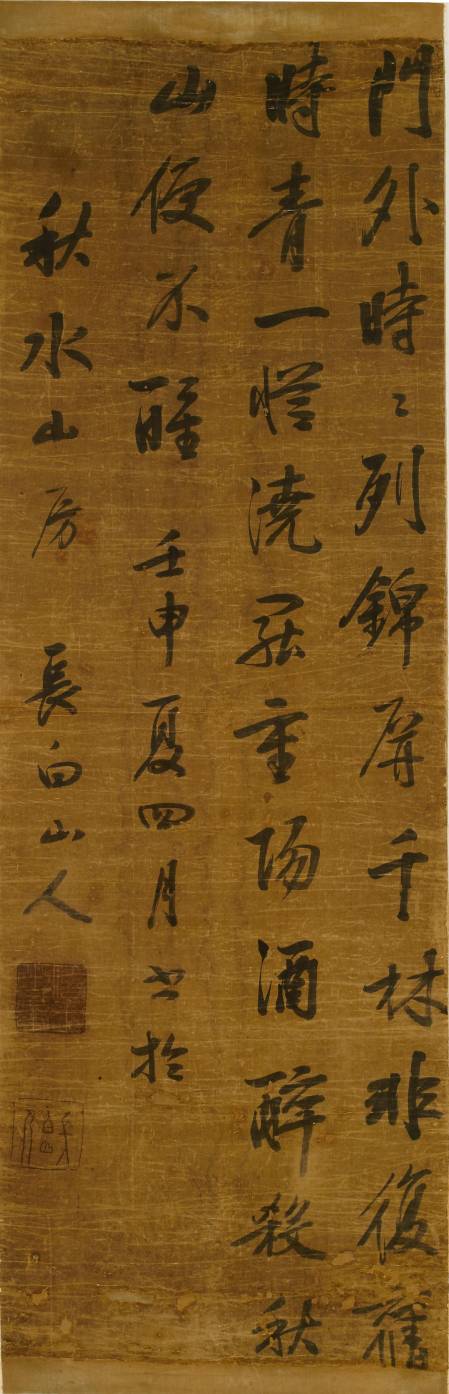 門外時〻列錦屏千林非復舊
時青一慿澆罷重陽酒醉殺秋
山便不醒 壬申夏四月書於
秋水山房 長白山人